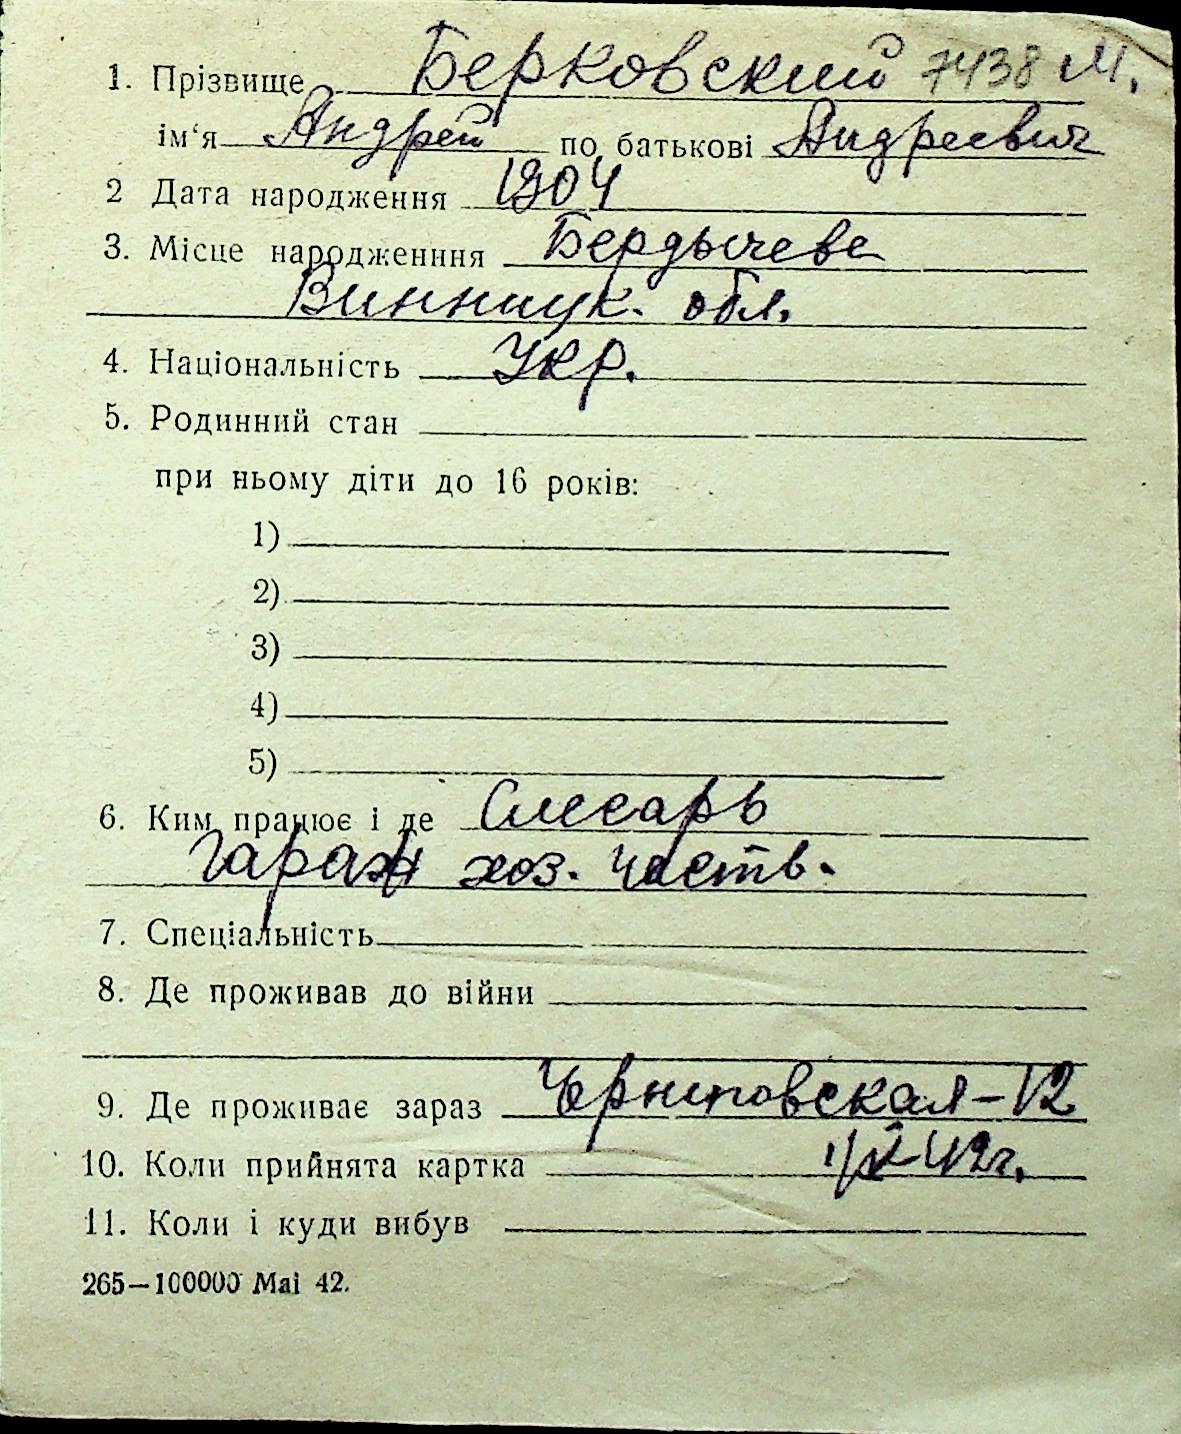 1. Прізвище Берковский 7438 М.
ім‘я Андрей по батькові Андреевич
2 Дата народження 1904
3. Місце народженння Бердычеве
Винницк. обл.
4. Національність Укр.
5. Родинний стан
при ньому діти до 16 років:
1)
2)
3)
4)
5)
6. Ким працює і де Слесарь
гараж хоз. часть.
7. Спеціальність
8. Де проживав до війни
9. Де проживає зараз 12
10. Коли прийнята картка 42г.
11. Коли і куди вибув
265—100000 Mai 42.